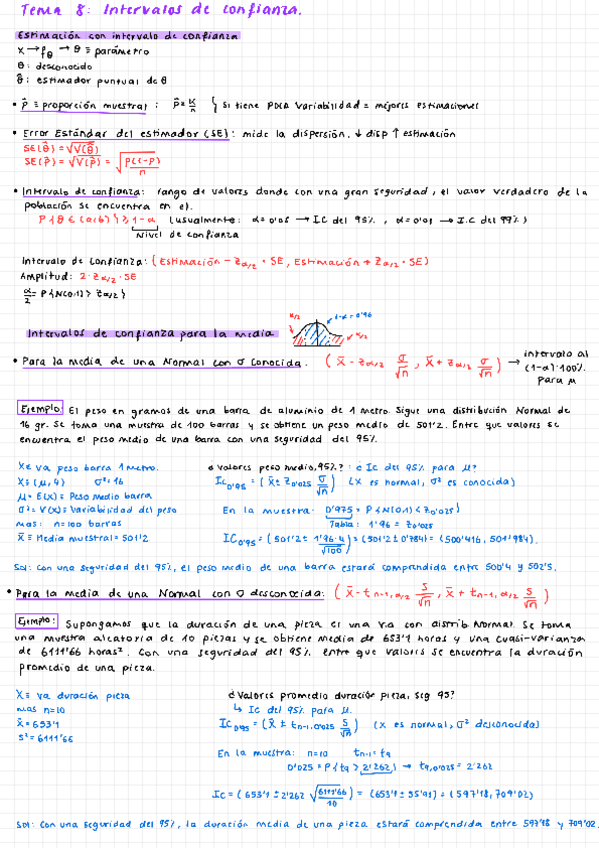 Tema 8: Intervalos de confianza.
Estimación con intervalo de confianza
X → fθ → θ ≡ parámetro
θ: desconocido
θ̂: estimador puntual de θ
• p̂ ≡ proporción muestral : p̂ = K/n { Si tiene poca variabilidad = mejores estimaciones
• Error Estándar del estimador (SE): mide la dispersión. ↓ disp ↑ estimación
SE(θ̂) = √V(θ̂)
SE(p̂) = √V(p̂) = √p(1-p)/n
• Intervalo de confianza: rango de valores donde con una gran seguridad, el valor verdadero de la
población se encuentra en el.
P{θ ∈ (a,b)} ≥ 1-α (usualmente: α=0'05 → IC del 95%, α=0'01 → I.C del 99%)
Nivel de confianza
Intervalo de confianza: (Estimación - Zα/2 · SE, Estimación + Zα/2 · SE)
Amplitud: 2·Zα/2 · SE
α/2 = P{N(0,1) > Zα/2}
α/2 1-α = 0'95 α/2
Intervalos de confianza para la media
• Para la media de una Normal con σ conocida. (x̄ - Zα/2 σ/√n , x̄ + Zα/2 σ/√n) → intervalo al
(1-α)·100%
para μ
Ejemplo: El peso en gramos de una barra de aluminio de 1 metro. Sigue una distribución Normal de
16 gr. Se toma una muestra de 100 barras y se obtiene un peso medio de 501'2. Entre que valores se
encuentra el peso medio de una barra con una seguridad del 95%.
X ≡ va peso barra 1 metro.
X ≡ (μ, 4) σ² = 16
μ = E(X) = Peso medio barra
σ² = V(X) = Variabilidad del peso
mas: n=100 barras
x̄ = Media muestral = 501'2
¿Valores peso medio, 95%? : ¿IC del 95% para μ?
IC0'95 = (x̄ ± Z0'025 σ/√n) (X es normal, σ² es conocida)
En la muestra: 0'975 = P{N(0,1) < Z0'025}
Tabla: 1'96 = Z0'025
IC0'95 = (501'2 ± 1'96·4/√100) = (501'2 ± 0'784) = (500'416, 501'984).
Sol: con una seguridad del 95%, el peso medio de una barra estará comprendida entre 500'4 y 502'5.
• Para la media de una Normal con σ desconocida: (x̄ - tn-1,α/2 S/√n , x̄ + tn-1,α/2 S/√n)
Ejemplo: Supongamos que la duración de una pieza es una v.a con distrib Normal. Se toma
una muestra aleatoria de 10 piezas y se obtiene media de 653'1 horas y una cuasi-varianza
de 6111'66 horas². Con una seguridad del 95% entre que valores se encuentra la duración
promedio de una pieza.
X ≡ va duración pieza
mas n=10
x̄ = 653'1
s² = 6111'66
¿Valores promedio duración pieza, seg 95?
↳ IC del 95% para μ.
IC0'95 = (x̄ ± tn-1,0'025 S/√n) (X es normal, σ² desconocida)
En la muestra: n=10 tn-1 = t9
0'025 = P{t9 > 2'262} → t9,0'025 = 2'262
IC = (653'1 ± 2'262 √6111'66/10) = (653'1 ± 55'92) = (597'18, 709'02)
Sol: Con una seguridad del 95%, la duración media de una pieza estará comprendida entre 597'18 y 709'02.